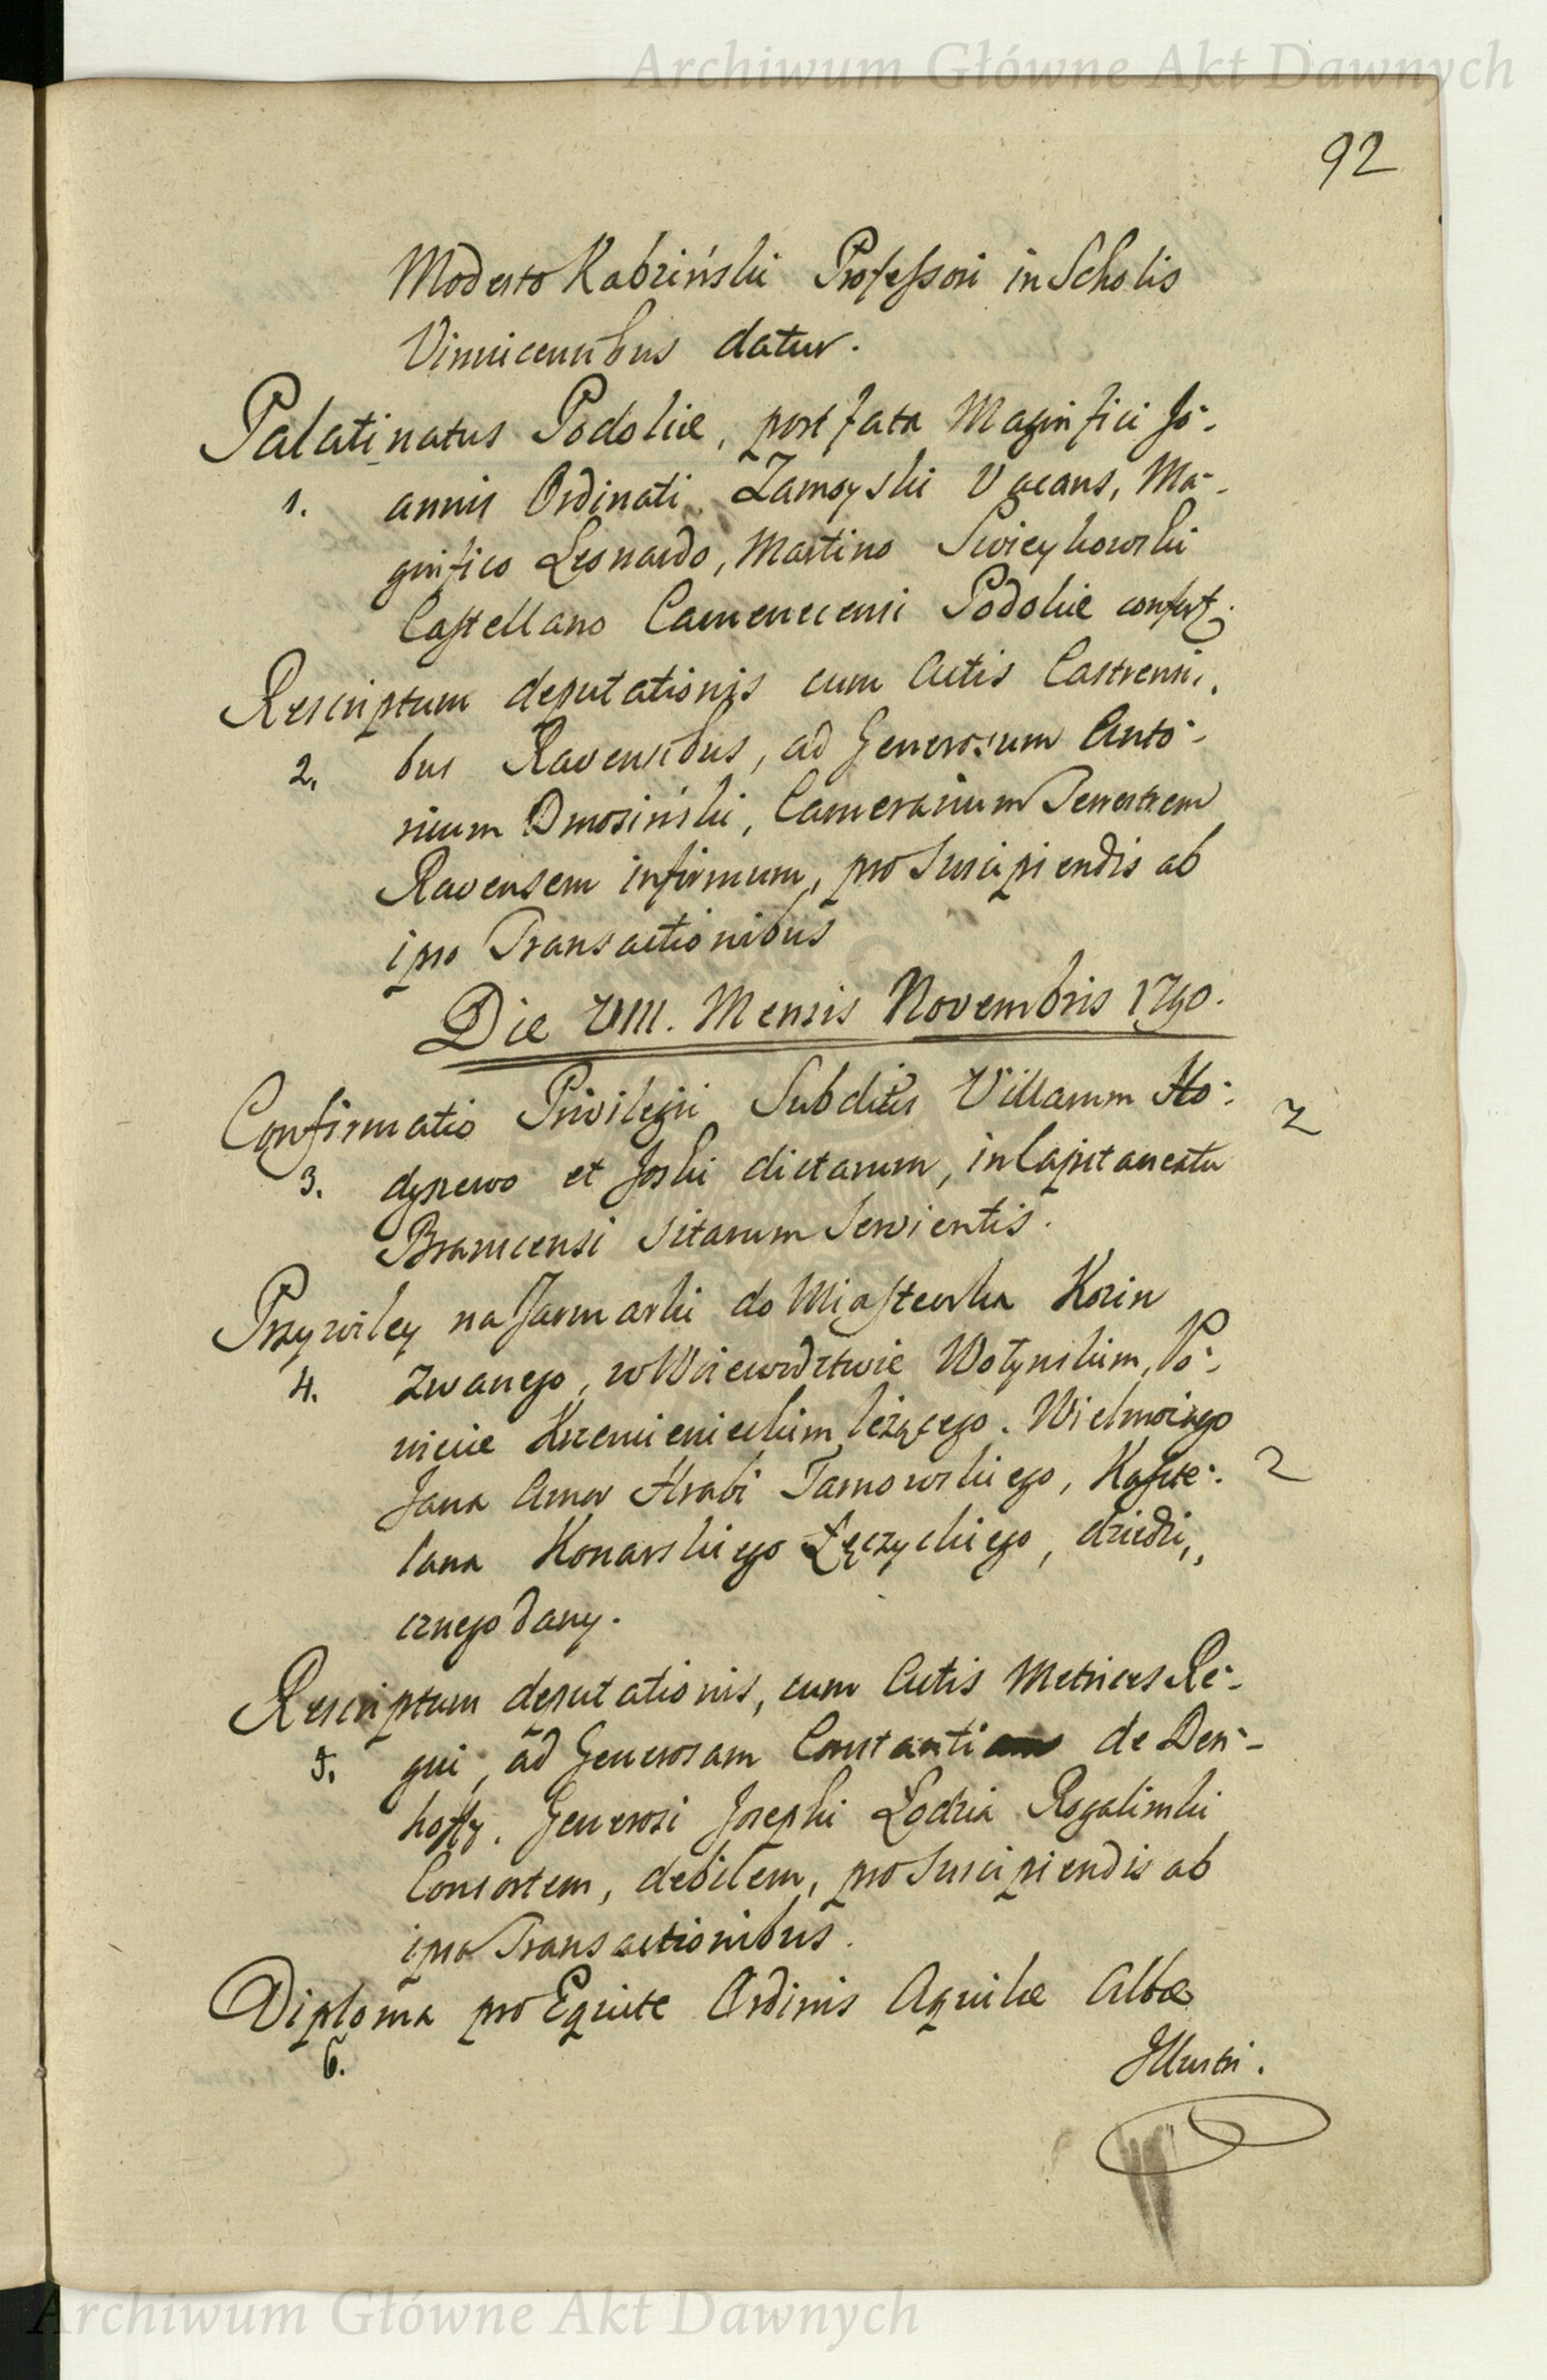 Archiwum Główne Akt Dawnych
92
Modesto Kabziński Professori in Scholis
Vinnicensibus datur.
Palatinatus Podoliæ, post fata Magnifici Jo-
1. annis Ordinati Zamoyski Vacans, Ma-
gnifico Leonardo, Martino Swieykowski
Castellano Camenecensi Podoliæ confert.
Rescriptum deputationis cum Actis Castrensi,
2. bus Ravensibus, ad Generosum Anto-
nium Dmosiński, Camerarium Terrestrem
Ravensem infirmum, pro Suscipiendis ab
ipso Transactionibus
Die VIII. Mensis Novembris 1790.
Confirmatio Privilegii Subditis Villarum Ho-
2
3. dyszewo et Joski dictarum, in Capitaneatu
Branicensi Sitarum Servientis.
Przywiley na Jarmarki do Miasteczka Kozin
4. zwanego, w Woiewodztwie Wołynskim, Po-
wiecie Krzemienieckim leżącego. Wielmożnego
Jana Amor Hrabi Tarnowskiego, Kaszte-
2
lana Konarskiego Łęczyckiego, dziedzi,,
cznego dany.
Rescriptum deputationis, cum Actis Metrices Re-
5. gni, ad Generosam Constantiam de Den-
hoffy. Generosi Josephi Łodzia Rogalinski
Consortem, debilem, pro Suscipiendis ab
ipsa Transactionibus.
Diploma pro Equite Ordinis Aquilæ Albæ
6.
Illustri.
Archiwum Główne Akt Dawnych